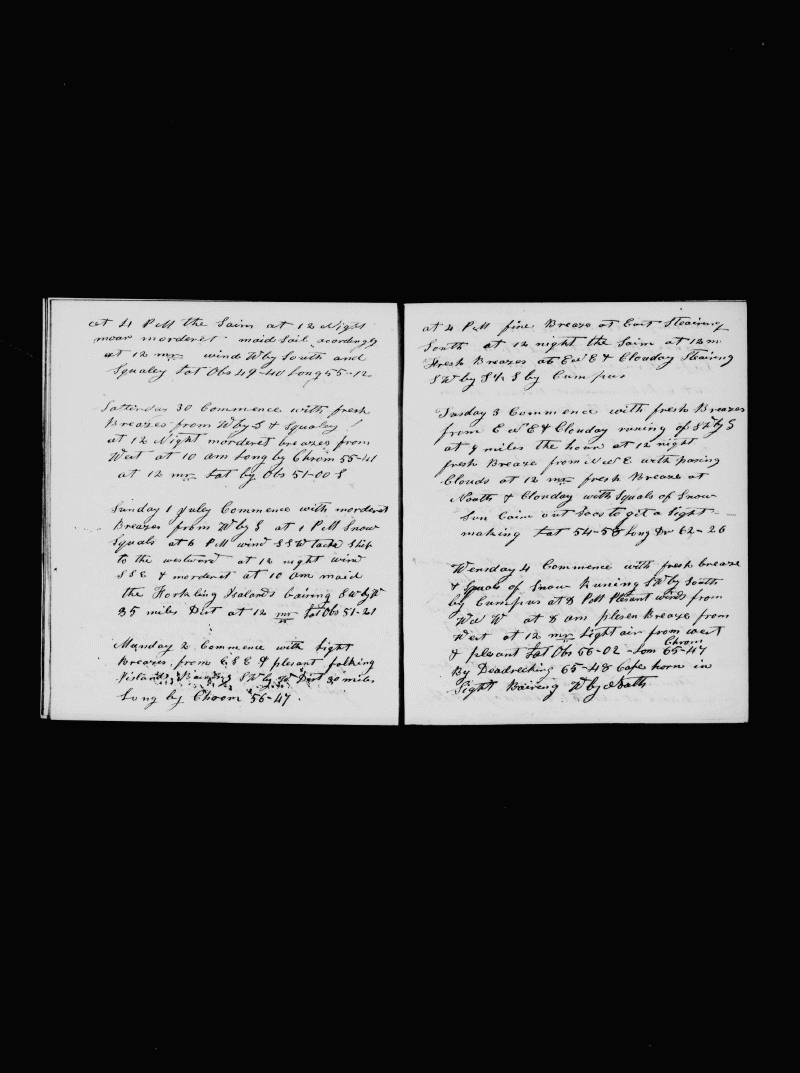 at 4 P.M the Saim at 12 Night
moar morderet maid Sail acordingly
at 12 mr wind W by South and
Squaley Lat Obs 49-40 Long 55-12
Satterday 30 Commence with fresh
Breazes from W by S & Squaley
at 12 Night morderet breazes from
West at 10 am Long by Chrom 55-41
at 12 mr Lat by Obs 51-00 S
Sunday 1 July Commence with morderet
Breazes from W by S at 1 P.M Snow
Squals at 6 P.M wind S S W tackt Ship
to the westward at 12 night wind
S S E & morderet at 10 am maid
the Forkling Iealands bairing S W by W
35 miles Dist at 12 mr Lat Obs 51-21
Munday 2 Commence with Light
Breazes from E S E & plesant folking
Nislands Bairing S W by W Dist 30 miles
Long by Chrom 56-47
at 4 P.M fine Breaze at East Stearing
South at 12 night the Saim at 12 m
Fresh Breazes at E N E & Clouday Stearing
S W by S 1/2 S by Cumpus
Tusday 3 Commence with fresh Breazes
from E N E & Clouday runing of S W by S
at 9 miles the hour at 12 night
fresh Breaze from N N E with pasing
Clouds at 12 mr fresh Breaze at
Noath & Clouday with Squals of Snow
Sun Caim out Soes to git a Sight
making Lat 54-58 Long Dr 62-26
Wensday 4 Commence with fresh breaze
& Squals of Snow Runing S W by South
by Cumpus at 8 P.M Plesant winds from
W N W at 8 am plesen Breaze from
West at 12 mr Light air from west
& plesant Lat Obs 56-02 Lon Chrom 65-47
By Deadreckinz 65-48 Cape horn in
Sight Bairing W by Noath